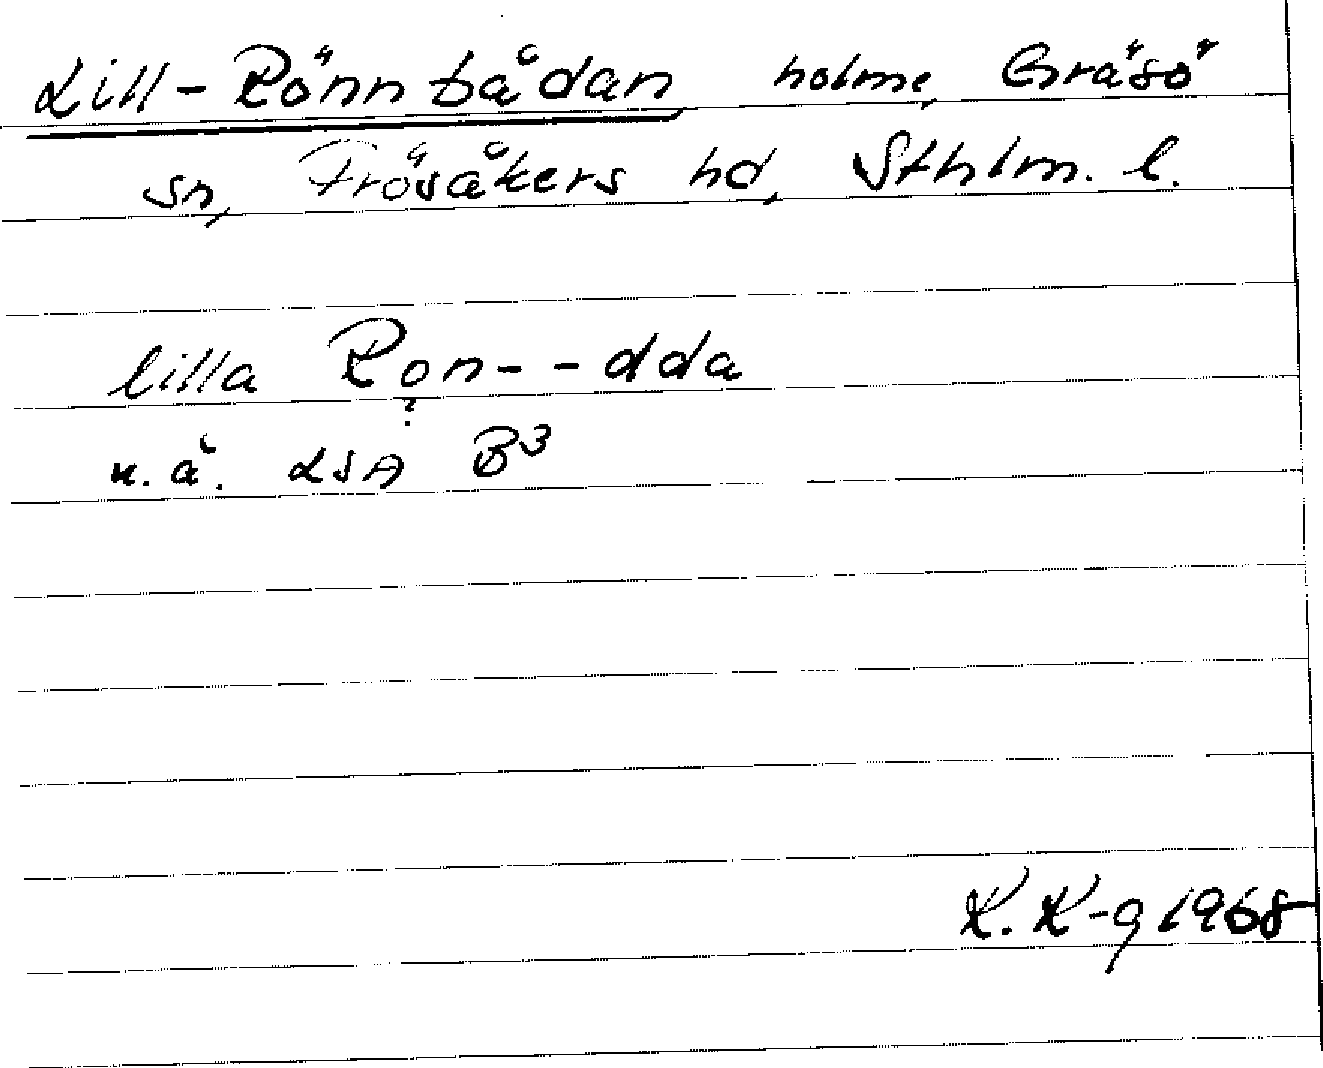 Lill-Rönnbådan holme, Gräsö
sn, Frösåkers hd, Sthlm. l.
lilla Ron--dda
?
u. å. LSA B³
K. K-g 1968